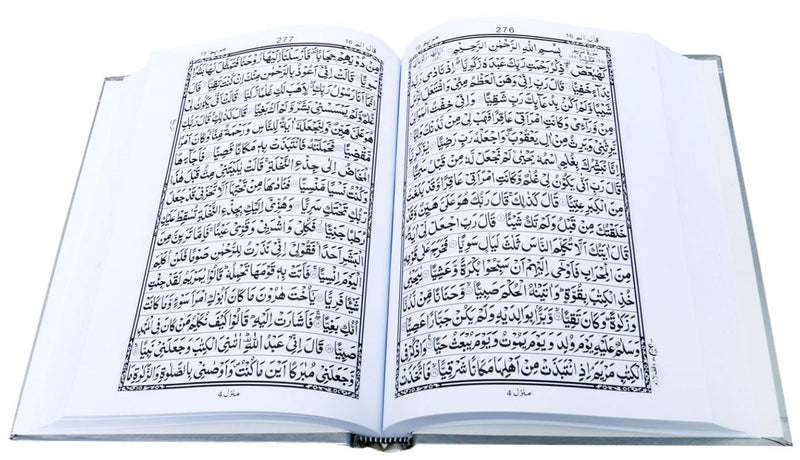 قال الم ١٦
276
مريم ١٩
بِسْمِ اللهِ الرَّحْمٰنِ الرَّحِيْمِ
كٓهٰيٰعٓصٓ ذِكْرُ رَحْمَتِ رَبِّكَ عَبْدَهٗ زَكَرِيَّا اِذْ نَادٰى رَبَّهٗ
نِدَآءً خَفِيًّا قَالَ رَبِّ اِنِّيْ وَهَنَ الْعَظْمُ مِنِّيْ وَاشْتَعَلَ الرَّاْسُ
شَيْبًا وَّلَمْ اَكُنْۢ بِدُعَآئِكَ رَبِّ شَقِيًّا وَاِنِّيْ خِفْتُ الْمَوَالِيَ
مِنْ وَّرَآءِيْ وَكَانَتِ امْرَاَتِيْ عَاقِرًا فَهَبْ لِيْ مِنْ لَّدُنْكَ وَلِيًّا
يَّرِثُنِيْ وَيَرِثُ مِنْ اٰلِ يَعْقُوْبَ وَاجْعَلْهُ رَبِّ رَضِيًّا يٰزَكَرِيَّآ
اِنَّا نُبَشِّرُكَ بِغُلٰمِ اسْمُهٗ يَحْيٰى لَمْ نَجْعَلْ لَّهٗ مِنْ قَبْلُ سَمِيًّا
قَالَ رَبِّ اَنّٰى يَكُوْنُ لِيْ غُلٰمٌ وَّكَانَتِ امْرَاَتِيْ عَاقِرًا وَّقَدْ بَلَغْتُ
مِنَ الْكِبَرِ عِتِيًّا قَالَ كَذٰلِكَ قَالَ رَبُّكَ هُوَ عَلَيَّ هَيِّنٌ وَّقَدْ
خَلَقْتُكَ مِنْ قَبْلُ وَلَمْ تَكُ شَيْئًا قَالَ رَبِّ اجْعَلْ لِّيْٓ اٰيَةً
قَالَ اٰيَتُكَ اَلَّا تُكَلِّمَ النَّاسَ ثَلٰثَ لَيَالٍ سَوِيًّا فَخَرَجَ عَلٰى قَوْمِهٖ
مِنَ الْمِحْرَابِ فَاَوْحٰٓى اِلَيْهِمْ اَنْ سَبِّحُوْا بُكْرَةً وَّعَشِيًّا يٰيَحْيٰى
خُذِ الْكِتٰبَ بِقُوَّةٍ وَاٰتَيْنٰهُ الْحُكْمَ صَبِيًّا وَّحَنَانًا مِّنْ لَّدُنَّا
وَزَكٰوةً وَكَانَ تَقِيًّا وَّبَرًّۢا بِوَالِدَيْهِ وَلَمْ يَكُنْ جَبَّارًا عَصِيًّا
وَسَلٰمٌ عَلَيْهِ يَوْمَ وُلِدَ وَيَوْمَ يَمُوْتُ وَيَوْمَ يُبْعَثُ حَيًّا وَاذْكُرْ فِى
الْكِتٰبِ مَرْيَمَ اِذِ انْتَبَذَتْ مِنْ اَهْلِهَا مَكَانًا شَرْقِيًّا فَاتَّخَذَتْ
منزل ٤
قال الم ١٦
277
مريم ١٩
مِنْ دُوْنِهِمْ حِجَابًا فَاَرْسَلْنَآ اِلَيْهَا رُوْحَنَا فَتَمَثَّلَ لَهَا بَشَرًا
سَوِيًّا قَالَتْ اِنِّيْٓ اَعُوْذُ بِالرَّحْمٰنِ مِنْكَ اِنْ كُنْتَ تَقِيًّا قَالَ
اِنَّمَآ اَنَا رَسُوْلُ رَبِّكِ لِاَهَبَ لَكِ غُلٰمًا زَكِيًّا قَالَتْ اَنّٰى يَكُوْنُ لِيْ
غُلٰمٌ وَّلَمْ يَمْسَسْنِيْ بَشَرٌ وَّلَمْ اَكُ بَغِيًّا قَالَ كَذٰلِكِ قَالَ رَبُّكِ
هُوَ عَلَيَّ هَيِّنٌ وَلِنَجْعَلَهٗٓ اٰيَةً لِّلنَّاسِ وَرَحْمَةً مِّنَّا وَكَانَ اَمْرًا
مَّقْضِيًّا فَحَمَلَتْهُ فَانْتَبَذَتْ بِهٖ مَكَانًا قَصِيًّا فَاَجَآءَهَا
الْمَخَاضُ اِلٰى جِذْعِ النَّخْلَةِ قَالَتْ يٰلَيْتَنِيْ مِتُّ قَبْلَ هٰذَا
وَكُنْتُ نَسْيًا مَّنْسِيًّا فَنَادٰىهَا مِنْ تَحْتِهَآ اَلَّا تَحْزَنِيْ قَدْ جَعَلَ
رَبُّكِ تَحْتَكِ سَرِيًّا وَهُزِّيْٓ اِلَيْكِ بِجِذْعِ النَّخْلَةِ تُسٰقِطْ عَلَيْكِ
رُطَبًا جَنِيًّا فَكُلِيْ وَاشْرَبِيْ وَقَرِّيْ عَيْنًا فَاِمَّا تَرَيِنَّ مِنَ
الْبَشَرِ اَحَدًا فَقُوْلِيْٓ اِنِّيْ نَذَرْتُ لِلرَّحْمٰنِ صَوْمًا فَلَنْ اُكَلِّمَ
الْيَوْمَ اِنْسِيًّا فَاَتَتْ بِهٖ قَوْمَهَا تَحْمِلُهٗ قَالُوْا يٰمَرْيَمُ لَقَدْ جِئْتِ
شَيْئًا فَرِيًّا يٰٓاُخْتَ هٰرُوْنَ مَا كَانَ اَبُوْكِ امْرَاَ سَوْءٍ وَّمَا كَانَتْ
اُمُّكِ بَغِيًّا فَاَشَارَتْ اِلَيْهِ قَالُوْا كَيْفَ نُكَلِّمُ مَنْ كَانَ فِى الْمَهْدِ
صَبِيًّا قَالَ اِنِّيْ عَبْدُ اللهِ اٰتٰىنِيَ الْكِتٰبَ وَجَعَلَنِيْ نَبِيًّا
وَّجَعَلَنِيْ مُبٰرَكًا اَيْنَ مَا كُنْتُ وَاَوْصٰنِيْ بِالصَّلٰوةِ وَالزَّكٰوةِ مَا
منزل ٤